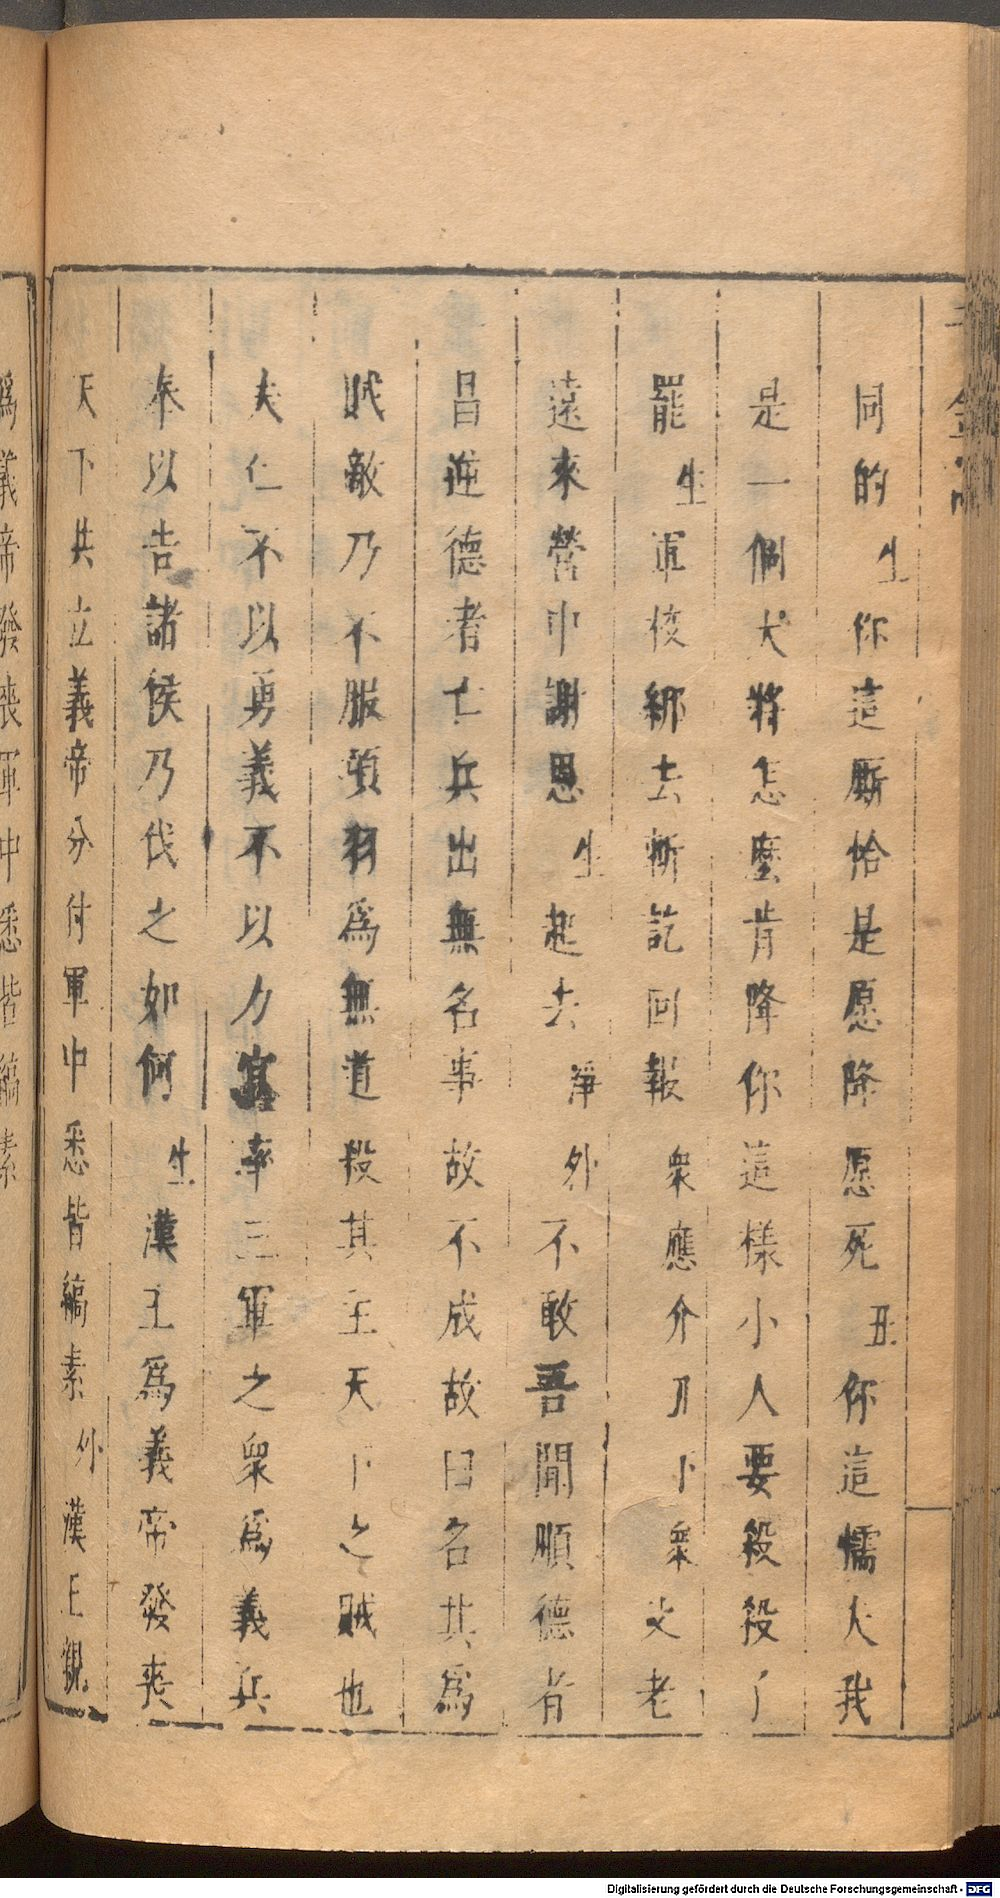 同的生你這厮恰是愿降愿死丑你這懦夫我
是一個犬將怎麽肯降你這樣小人要殺殺了
罷生軍校綁去斬訖回報衆應介刀下衆父老
遠來營中謝恩生起去淨外不敢吾聞順德者
昌逆德者亡兵出無名事故不成故曰名其為
賊敵乃不服項羽為無道殺其主天下之賊也
夫仁不以勇義不以力寔率三軍之衆為義兵
奉以告諸侯乃伐之如何生漢王為義帝發喪
天下共立義帝分付軍中悉皆縞素外漢王親
為義帝發喪軍中悉皆縞素
Digitalisierung gefördert durch die Deutsche Forschungsgemeinschaft - DFG